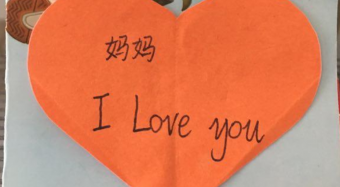 妈妈
I Love you